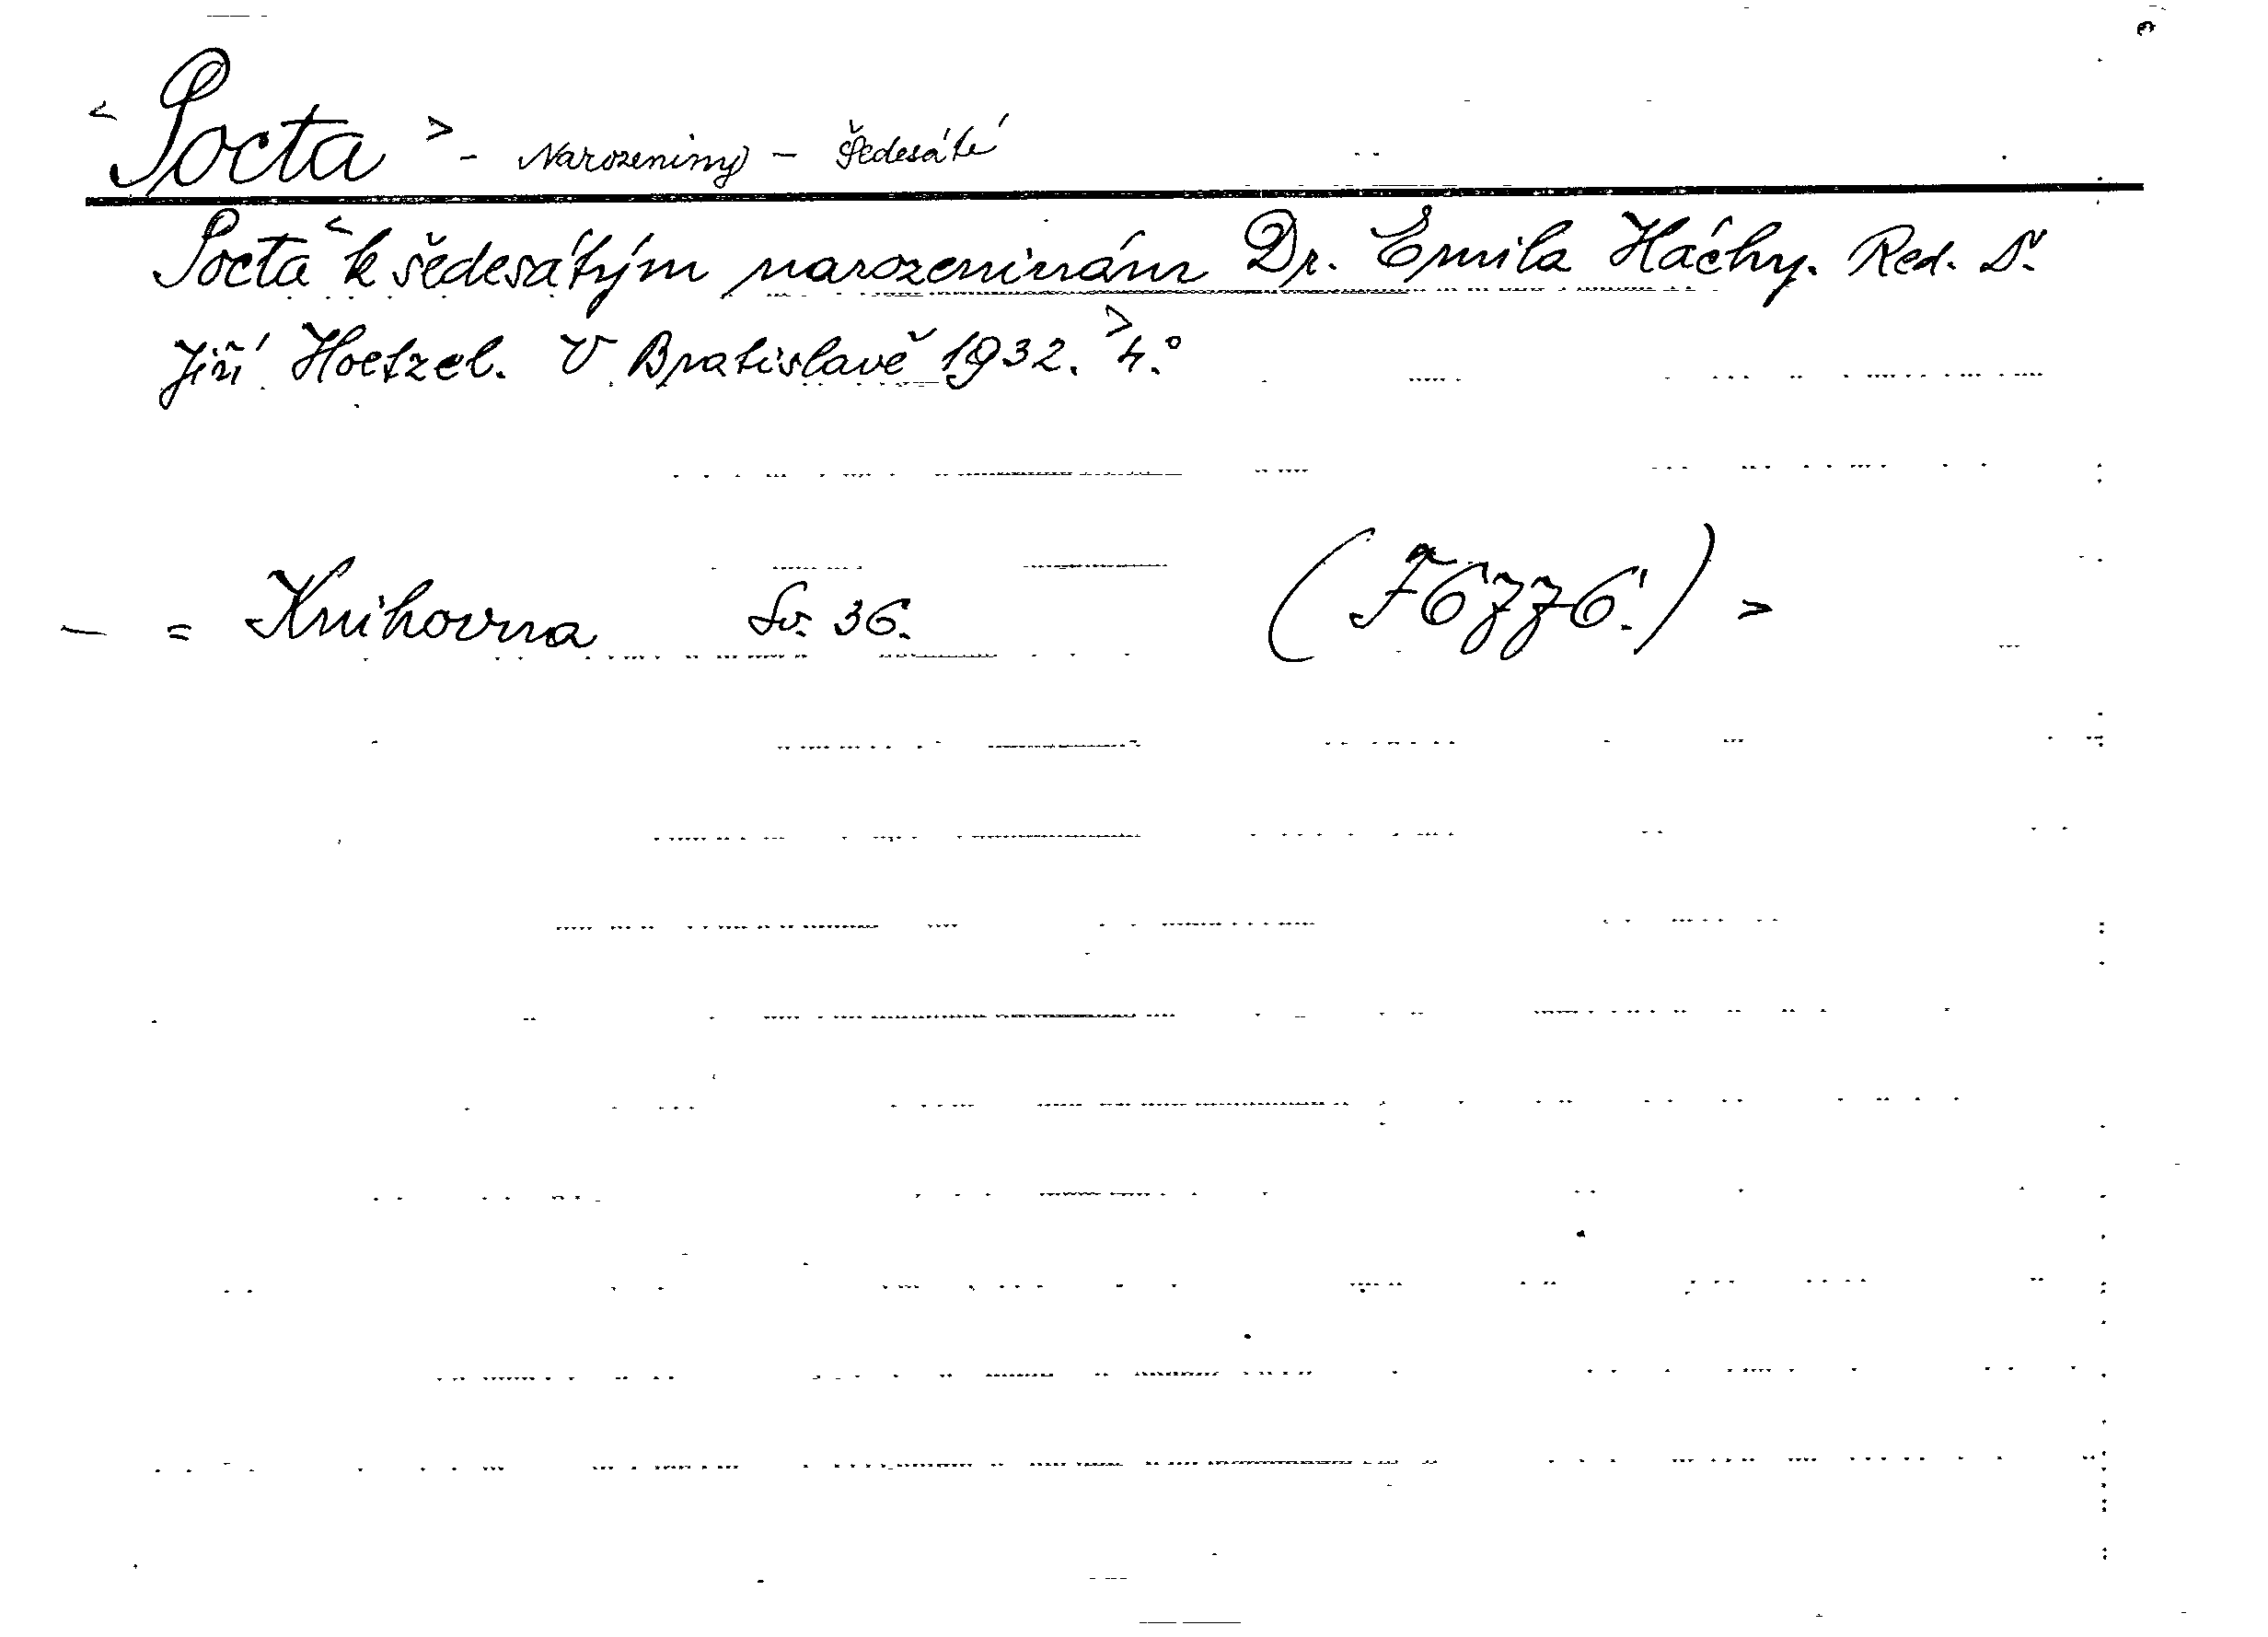 < Pocta > - Narozeniny - Šedesáté
Pocta < k šedesátým narozeninám Dr. Emila Háchy. Red. Dr.
Jiří Hoetzel. V Bratislavě 1932. > 4.°
- = Knihovna Sv. 36. (F6776.) >